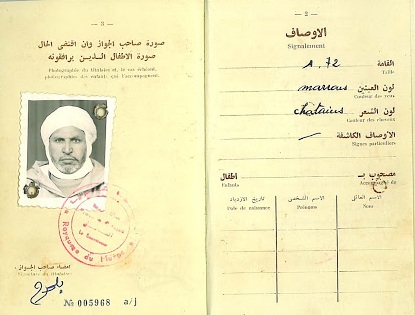 — 3 —
صورة صاحب الجواز وان اقتضى الحال
صورة الاطفال الذين يرافقونه
Photographie du titulaire et, le cas échéant,
photographies des enfants qui l'accompagnent.
Royaume du Maroc
امضاء صاحب الجواز
Signature du titulaire
№ 005968 a/j
— 2 —
الاوصاف
Signalement
1.72 القامة
Taille
marrons لون العينين
Couleur des yeux
chatains لون الشعر
Couleur des cheveux
الاوصاف الكاشفة
Signes particuliers
مصحوب بـ اطفال
Accompagné de Enfants
الاسم العائلي الاسم الشخصي تاريخ الازدياد
Nom Prénoms Date de naissance